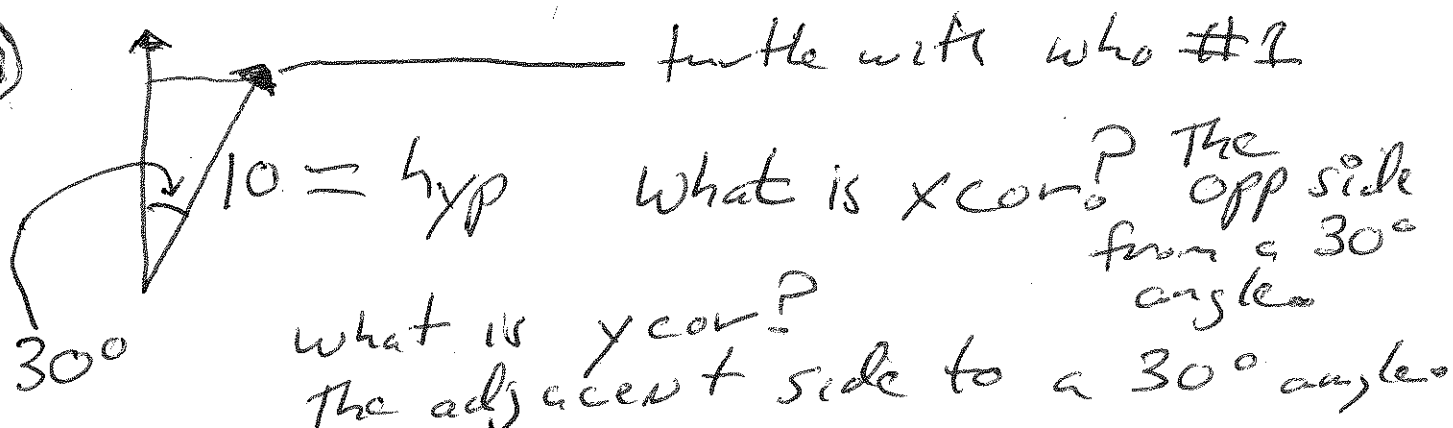 turtle with who #1
10 = hyp
What is xcor? The opp side from a 30° angle.
30°
what is ycor?
The adjacent side to a 30° angle.